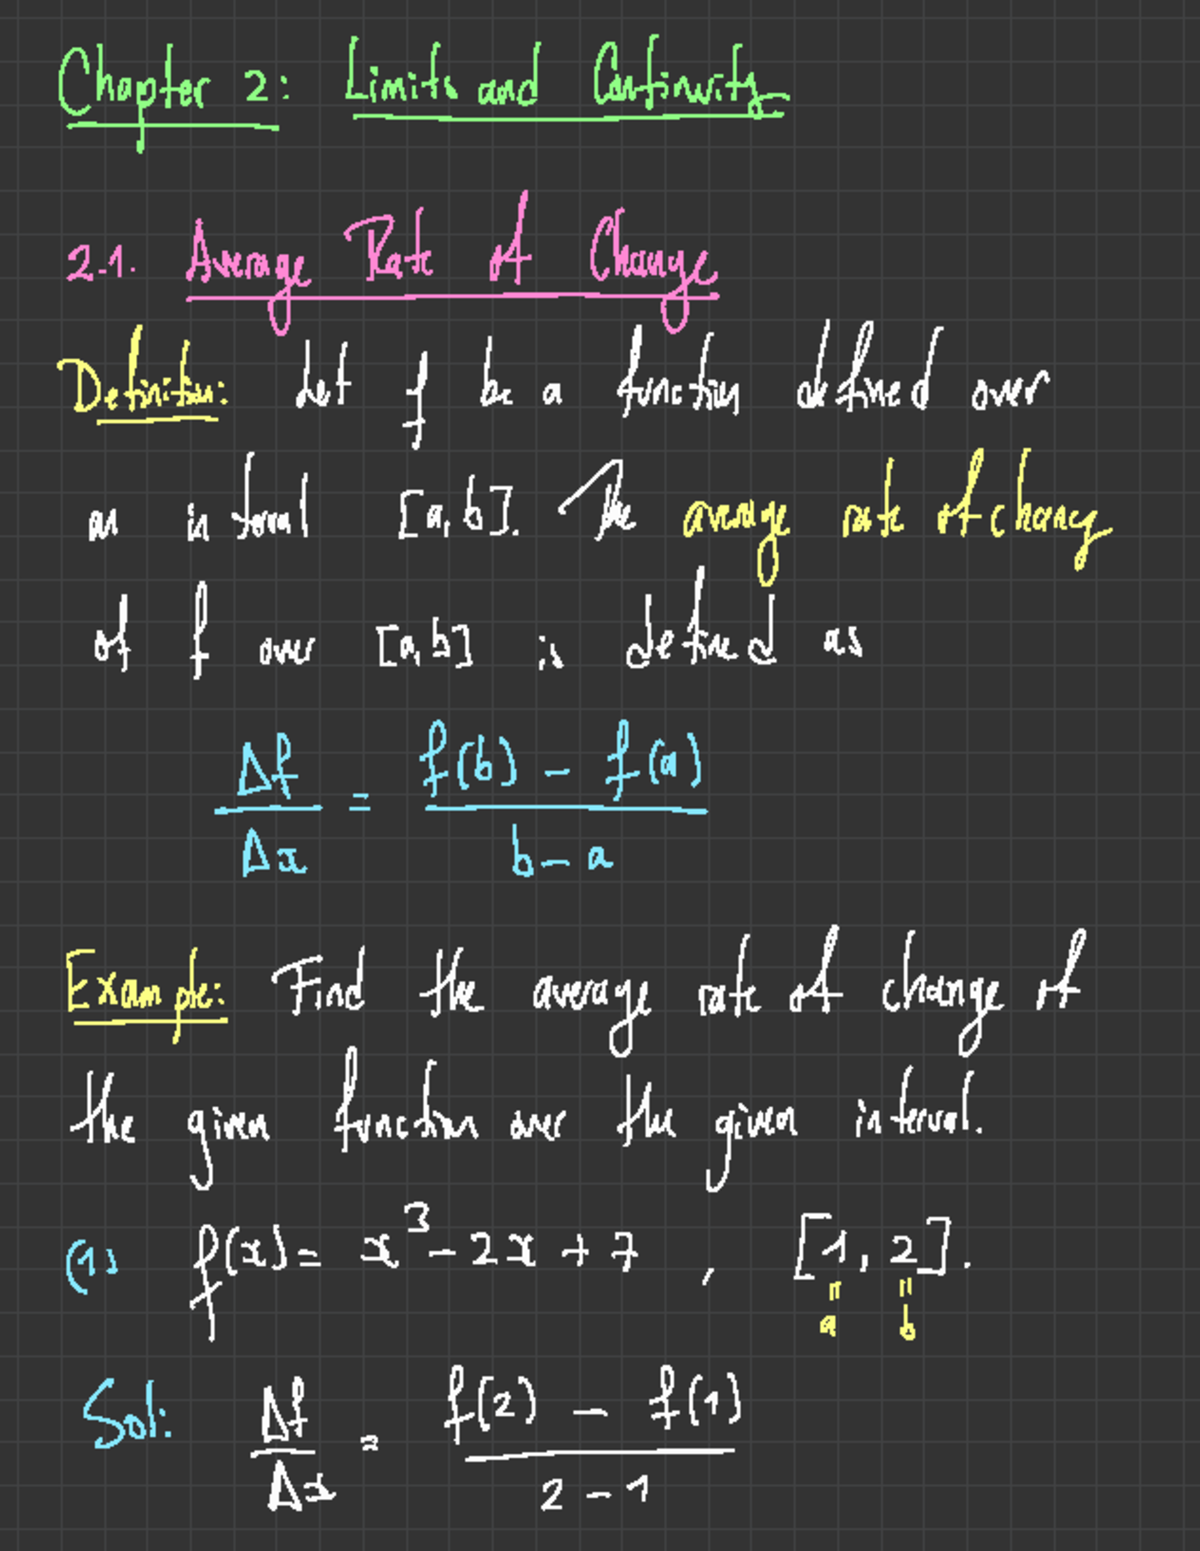 Chapter 2: Limits and Continuity
2.1. Average Rate of Change
Definition: Let f be a function defined over
an interval [a, b]. The average rate of change
of f over [a, b] is defined as
Δf/Δx = (f(b) - f(a))/(b - a)
Example: Find the average rate of change of
the given function over the given interval.
(1) f(x) = x³ - 2x + 7 , [1, 2].
" "
a b
Sol: Δf/Δx = (f(2) - f(1))/(2 - 1)